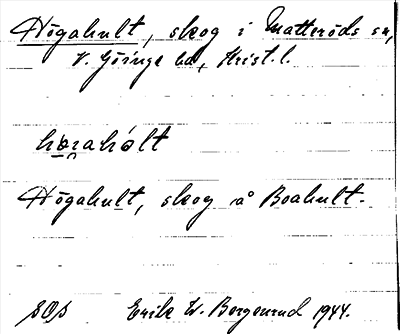 Högahult, skog i Matteröds sn,
V. Göinge hd, Krist. l.
hørahólt
Högahult, skog å Boahult.
SOS Erik W. Bergenrud 1944.